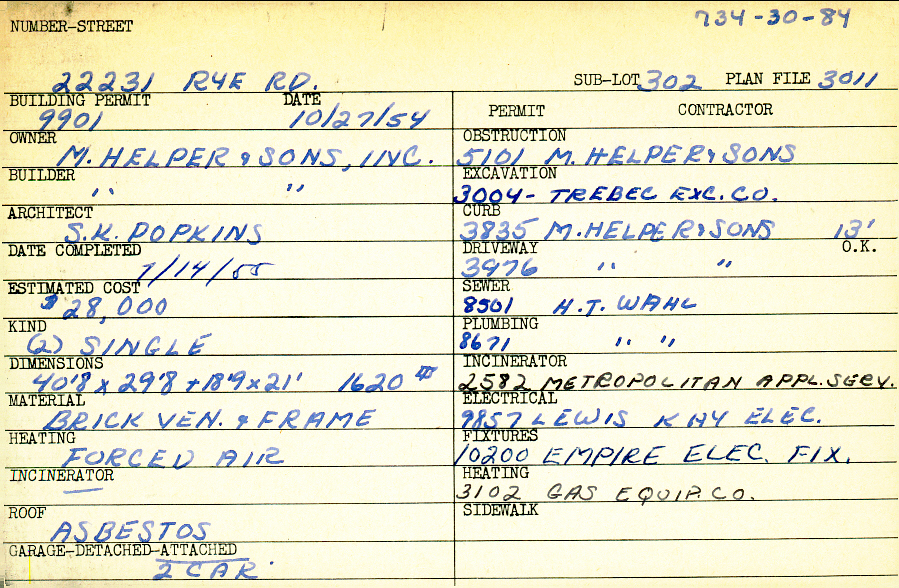 734-30-84
NUMBER-STREET
22231 RYE RD.
SUB-LOT 302 PLAN FILE 3011
BUILDING PERMIT DATE
9901 10/27/54
OWNER
M. HELPER & SONS, INC.
BUILDER
" "
ARCHITECT
S.K. POPKINS
DATE COMPLETED
7/14/55
ESTIMATED COST
$28,000
KIND
(2) SINGLE
DIMENSIONS
40'8 x 29'8 + 18'9 x 21' 1620
MATERIAL
BRICK VEN. & FRAME
HEATING
FORCED AIR
INCINERATOR
—
ROOF
ASBESTOS
GARAGE-DETACHED-ATTACHED
2 CAR
PERMIT CONTRACTOR
OBSTRUCTION
5101 M. HELPER & SONS
EXCAVATION
3004- TREBEC EXC. CO.
CURB
3835 M. HELPER & SONS 13'
DRIVEWAY O.K.
3976 " "
SEWER
8501 H.T. WAHL
PLUMBING
8671 " "
INCINERATOR
2582 METROPOLITAN APPL. SERV.
ELECTRICAL
9857 LEWIS KAY ELEC.
FIXTURES
10200 EMPIRE ELEC. FIX.
HEATING
3102 GAS EQUIP. CO.
SIDEWALK